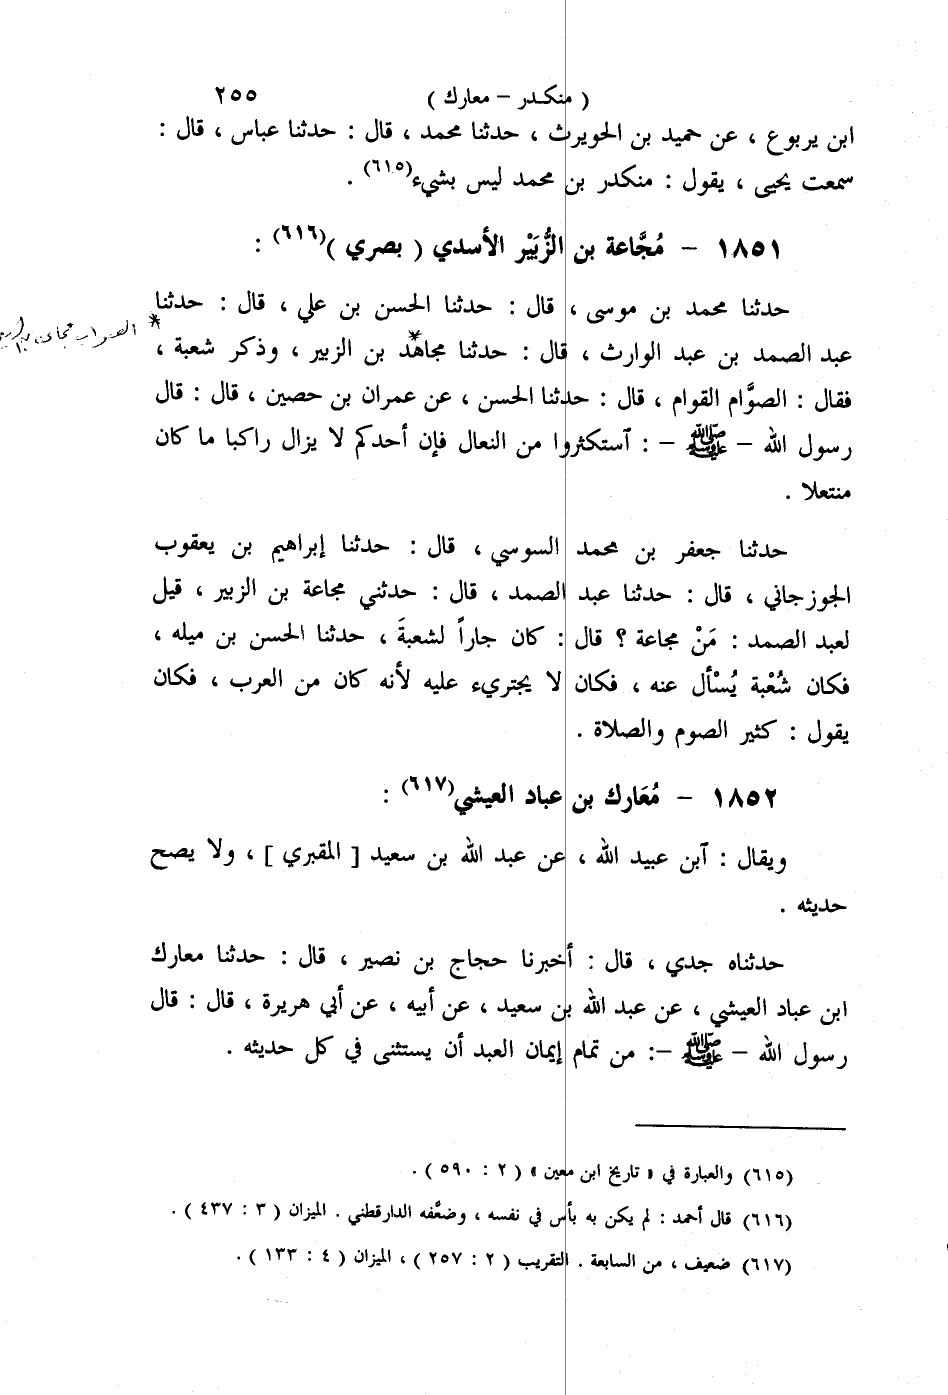 ( منكدر – معارك ) ٢٥٥
ابن يربوع ، عن حميد بن الحويرث ، حدثنا محمد ، قال : حدثنا عباس ، قال :
سمعت يحيى ، يقول : منكدر بن محمد ليس بشيء(٦١٥) .
١٨٥١ – مُجَّاعة بن الزُّبَيْر الأسدي ( بصري )(٦١٦) :
حدثنا محمد بن موسى ، قال : حدثنا الحسن بن علي ، قال : حدثنا
عبد الصمد بن عبد الوارث ، قال : حدثنا مجاهد* بن الزبير ، وذكر شعبة ،
* الصواب مجاعة
فقال : الصوَّام القوام ، قال : حدثنا الحسن ، عن عمران بن حصين ، قال : قال
رسول الله – ﷺ – : آستكثروا من النعال فإن أحدكم لا يزال راكبا ما كان
منتعلا .
حدثنا جعفر بن محمد السوسي ، قال : حدثنا إبراهيم بن يعقوب
الجوزجاني ، قال : حدثنا عبد الصمد ، قال : حدثني مجاعة بن الزبير ، قيل
لعبد الصمد : مَنْ مجاعة ؟ قال : كان جاراً لشعبةَ ، حدثنا الحسن بن ميله ،
فكان شُعْبة يُسْأل عنه ، فكان لا يجتريء عليه لأنه كان من العرب ، فكان
يقول : كثير الصوم والصلاة .
١٨٥٢ – مُعَارك بن عباد العيشي(٦١٧) :
ويقال : آبن عبيد الله ، عن عبد الله بن سعيد [ المقبري ] ، ولا يصح
حديثه .
حدثناه جدي ، قال : أخبرنا حجاج بن نصير ، قال : حدثنا معارك
ابن عباد العيشي ، عن عبد الله بن سعيد ، عن أبيه ، عن أبي هريرة ، قال : قال
رسول الله – ﷺ –: من تمام إيمان العبد أن يستثنى في كل حديثه .
(٦١٥) والعبارة في « تاريخ ابن معين » ( ٢ : ٥٩٠ ) .
(٦١٦) قال أحمد : لم يكن به بأس في نفسه ، وضعَّفه الدارقطني . الميزان ( ٣ : ٤٣٧ ) .
(٦١٧) ضعيف ، من السابعة . التقريب ( ٢ : ٢٥٧ ) ، الميزان ( ٤ : ١٣٣ ) .